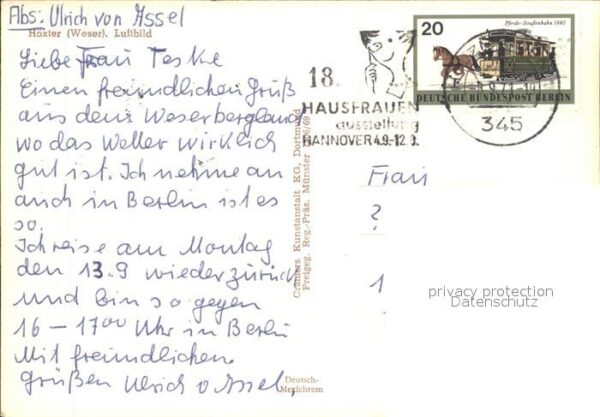 Abs: Ulrich von Assel
Höxter (Weser). Luftbild
Liebe Frau Teske
Einen freundlichen Gruß
aus dem Weserbergland
wo das Wetter wirklich
gut ist. Ich nehme an
auch in Berlin ist es
so.
Ich reise am Montag
den 13.9 wieder zurück
und bin so gegen
16 – 17 00 Uhr in Berlin
Mit freundlichen
grüßen Ulrich v Assel,
Cramers Kunstanstalt KG, Dortmund
Freigeg. Reg.-Präs. Münster
Deutsch-
Mexichrom
18.
HAUSFRAUEN
ausstellung
HANNOVER 4.9.-12.9.
20
Pferde-Straßenbahn 1880
DEUTSCHE BUNDESPOST BERLIN
345
Frau
?
1
privacy protection
Datenschutz